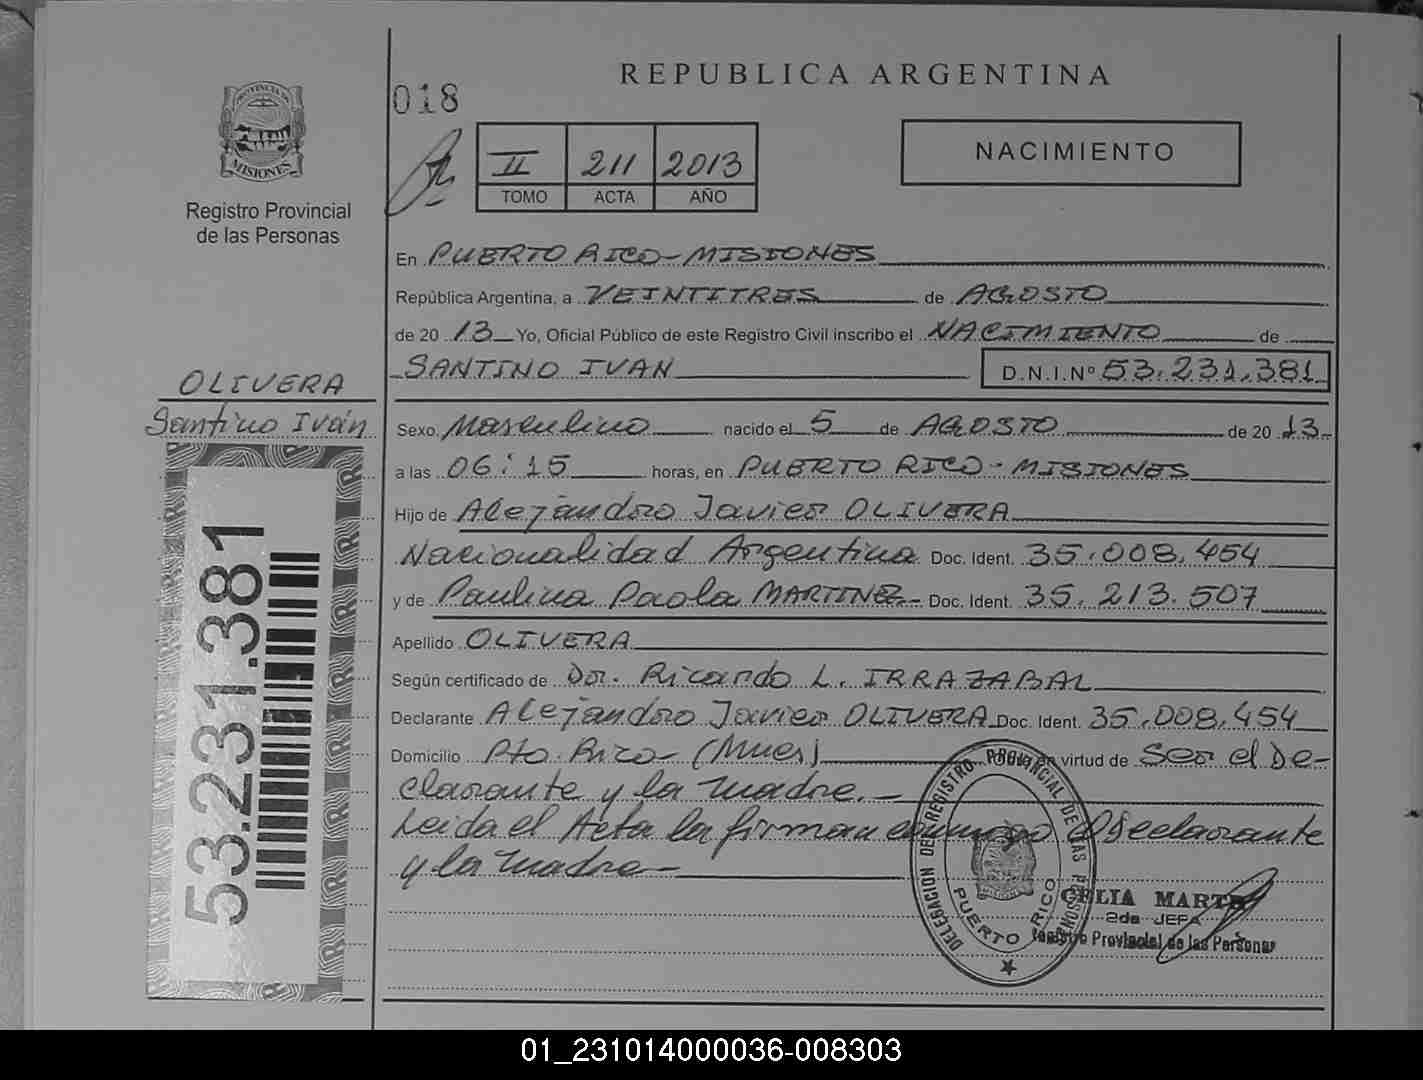 REPUBLICA ARGENTINA
018
PROVINCIA DE
MISIONES
Registro Provincial
de las Personas
II 211 2013
TOMO ACTA AÑO
NACIMIENTO
En PUERTO RICO - MISIONES
República Argentina, a VEINTITRES de AGOSTO
de 20 13 Yo, Oficial Público de este Registro Civil inscribo el NACIMIENTO de
SANTINO IVAN D.N.I.Nº 53.231.381
OLIVERA
Santino Iván
Sexo Masculino nacido el 5 de AGOSTO de 20 13
a las 06:15 horas, en PUERTO RICO - MISIONES
Hijo de Alejandro Javier OLIVERA
Nacionalidad Argentina Doc. Ident. 35.008.454
y de Paulina Paola MARTINEZ - Doc. Ident. 35.213.507
Apellido OLIVERA
Según certificado de Dr. Ricardo L. IRRAZABAL
Declarante Alejandro Javier OLIVERA Doc. Ident. 35.008.454
Domicilio Pto. Rico - (Mnes) virtud de Ser el De-
clarante y la madre. -
Leida el Acta la firman conmigo Declarante
y la madre -
53.231.381
DELEGACION DEL REGISTRO PROVINCIAL DE LAS PERSONAS
PUERTO RICO
CELIA MARTA
2da JEFA
Registro Provincial de las Personas
01_231014000036-008303